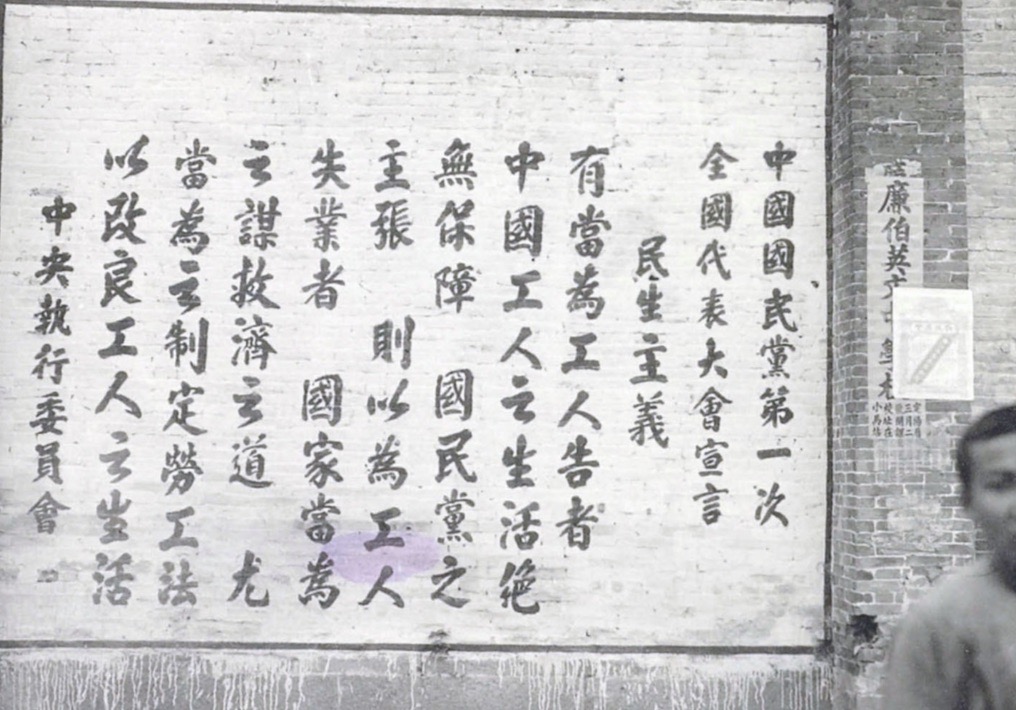 中國國民黨第一次
全國代表大會宣言
民生主義
有當為工人告者
中國工人之生活絶
無保障 國民黨之
主張 則以為工人
失業者 國家當為
之謀救濟之道 尤
當為之制定勞工法
以改良工人之生活
中央執行委員會
廉伯英文